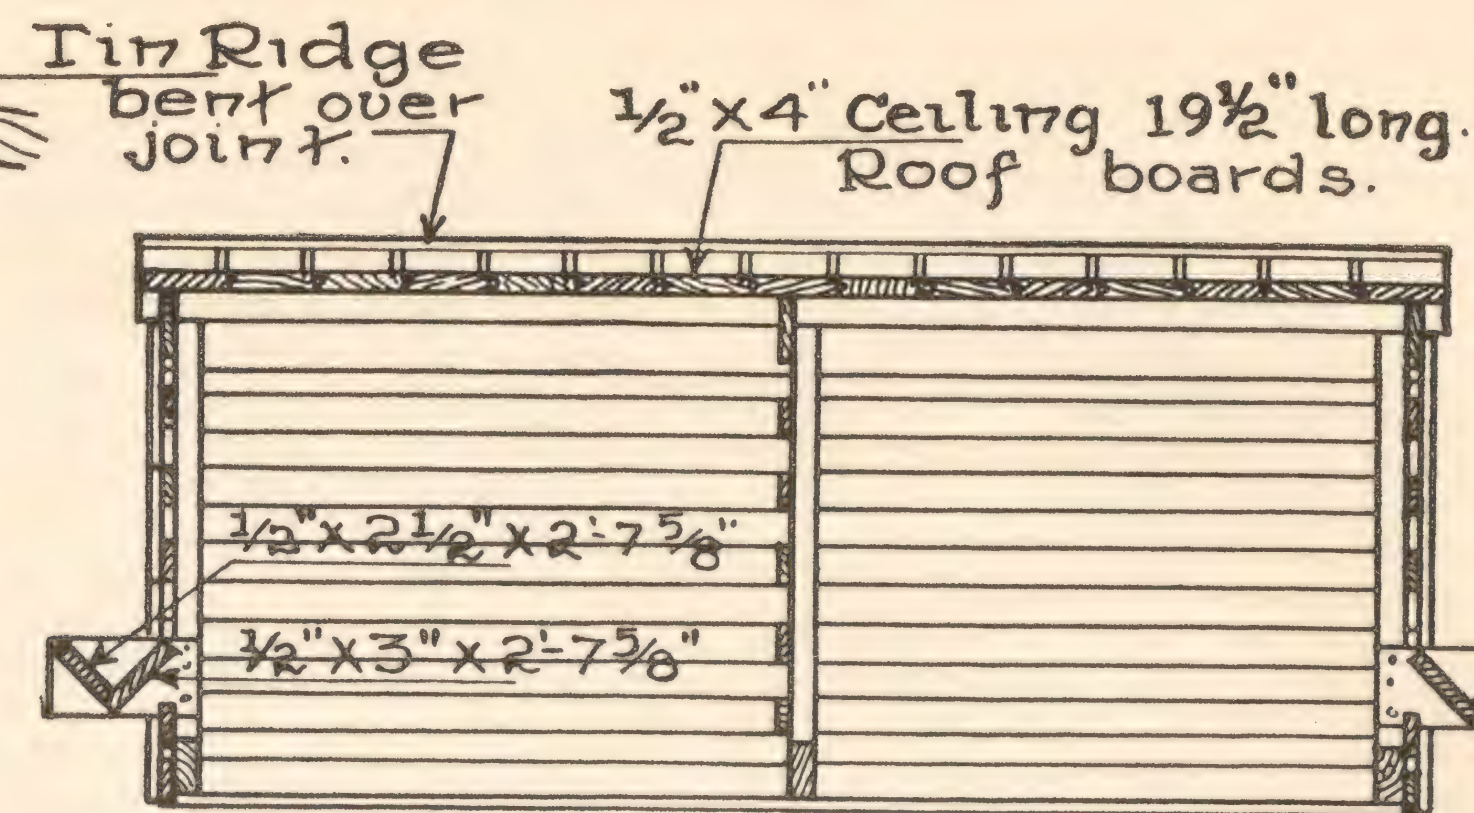 Tin Ridge
bent over
joint.
1/2" x 4" Ceiling 19 1/2" long.
Roof boards.
1/2" x 2 1/2" x 2'-7 5/8"
1/2" x 3" x 2'-7 5/8"